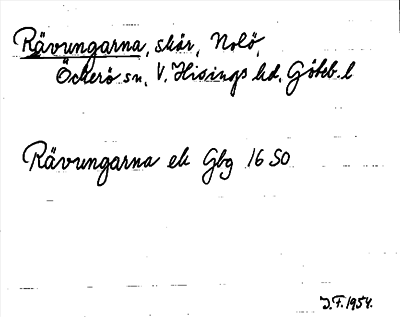 Rävungarna, skär, Nolö,
Öckerö sn, V. Hisings hd, Göteb. l
Rävungarna ek Gbg 16 SO
J.F. 1954.